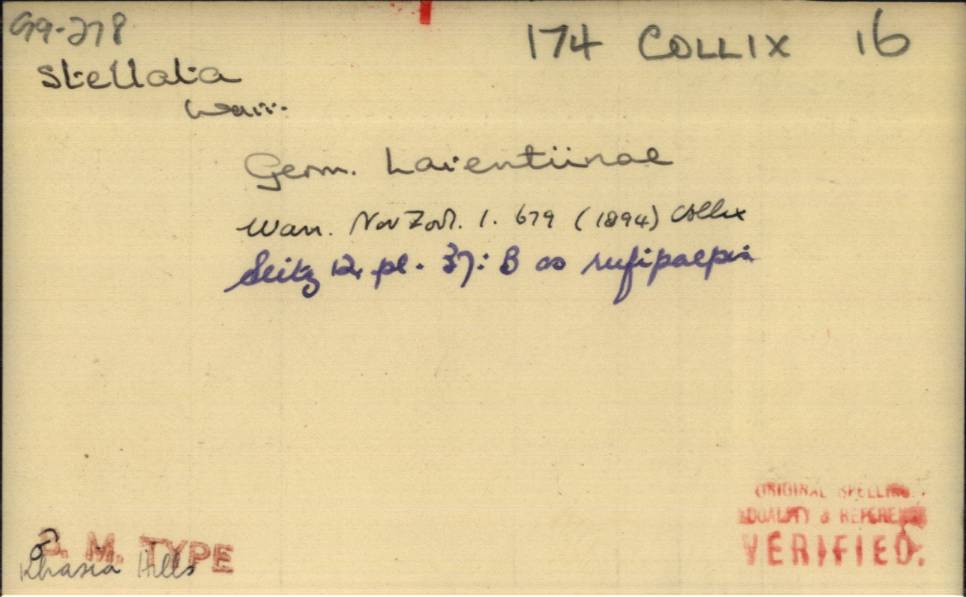 G9-278
174 COLLIX 16
Stellata
Warr.
Geom. Larentiinae
Warr. Nov Zool. 1. 679 (1894) Collix
Seitz 12, pl. 37: B as rufipalpis
ORIGINAL SPELLING
LOCALITY & REFERENCE
VERIFIED.
B. M. TYPE
Khasia Hills